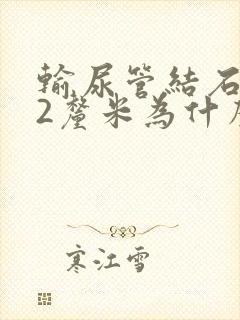 輸尿管結石
2釐米為什
寒江雪